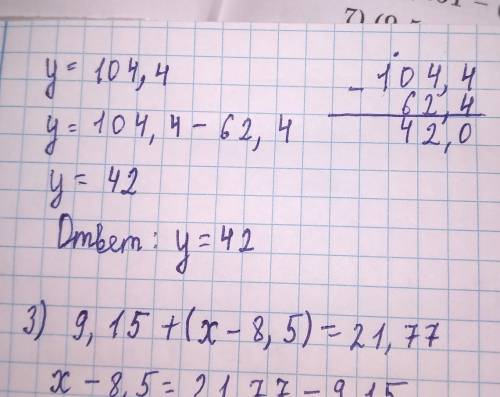 7) (0
y = 104,4
y = 104,4 - 62,4
y = 42
Ответ: y = 42
- 104,4
62,4
42,0
3) 9,15 + (x - 8,5) = 21,77
x - 8,5 = 21,77 - 9,15